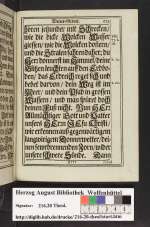 hören jetzunder mit Schrecken/
wie die dicke Wolcken Wasser
giessen/ wie die Wolcken donnern/
und die Strahlen schiessen daher; du
HErr donnerst im Himmel/ deine
Blitzen leuchten auf dem Erdbo-
den/ das Erdreich reget sich und
bebet darvon/ dein Weg ist im
Meer/ und dein Pfad in grossen
Wassern/ und man spüret doch
deinen Fuß nicht. Nun HErr
Allmächtiger Gott und Vatter
unsers HErrn JEsu Christi/
wir erkennen auß gegenwärtigem
Donnerwetter/
brennenden Zorn wider
unsere schwere Sünde. Dann
Herzog August Bibliothek Wolfenbüttel
Signatur: 214.20 Theol.
http://diglib.hab.de/drucke/214-20-theol/start.htm